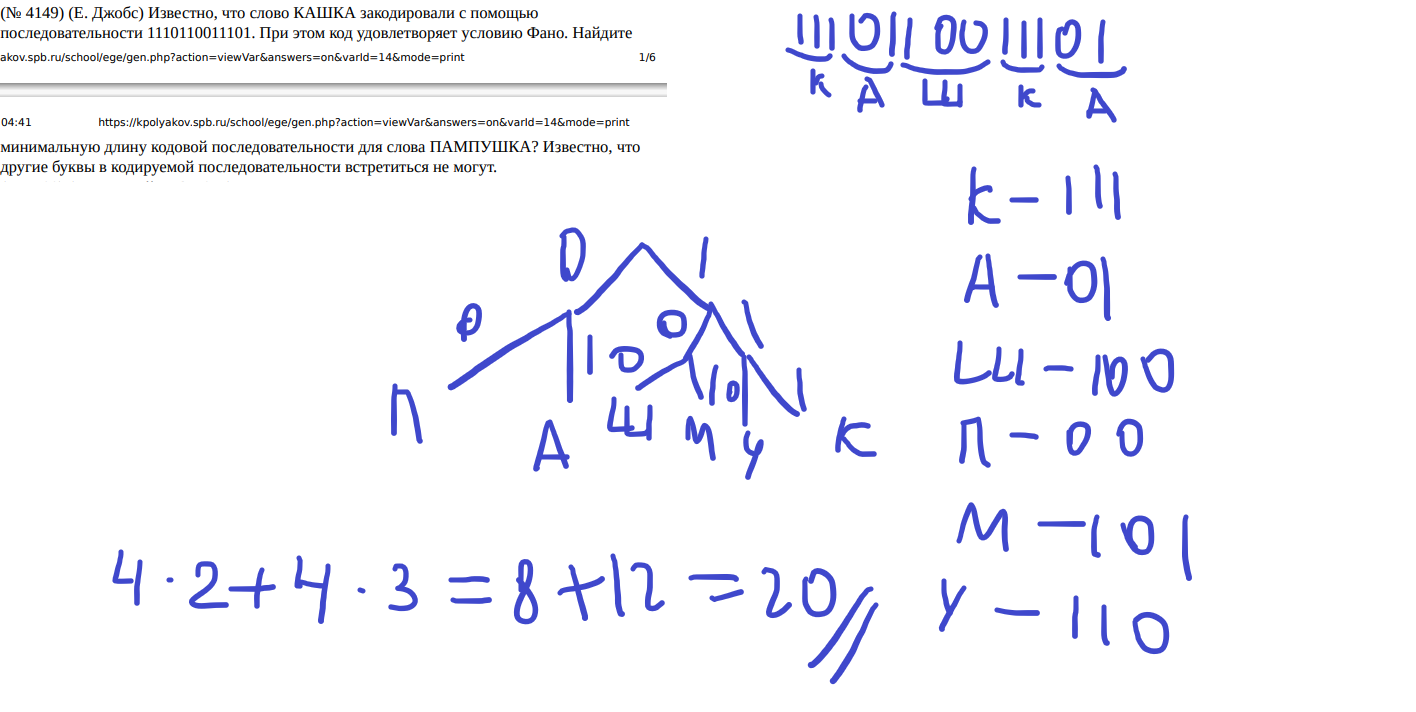 (№ 4149) (Е. Джобс) Известно, что слово КАШКА закодировали с помощью
последовательности 1110110011101. При этом код удовлетворяет условию Фано. Найдите
akov.spb.ru/school/ege/gen.php?action=viewVar&answers=on&varId=14&mode=print 1/6
04:41 https://kpolyakov.spb.ru/school/ege/gen.php?action=viewVar&answers=on&varId=14&mode=print
минимальную длину кодовой последовательности для слова ПАМПУШКА? Известно, что
другие буквы в кодируемой последовательности встретиться не могут.
111 01 100 111 01
К А Ш К А
К – 111
А – 01
Ш – 100
П – 00
М – 101
У – 110
0 1
0 1 0 1
0 1 0 1
П А Ш М У К
4 · 2 + 4 · 3 = 8 + 12 = 20